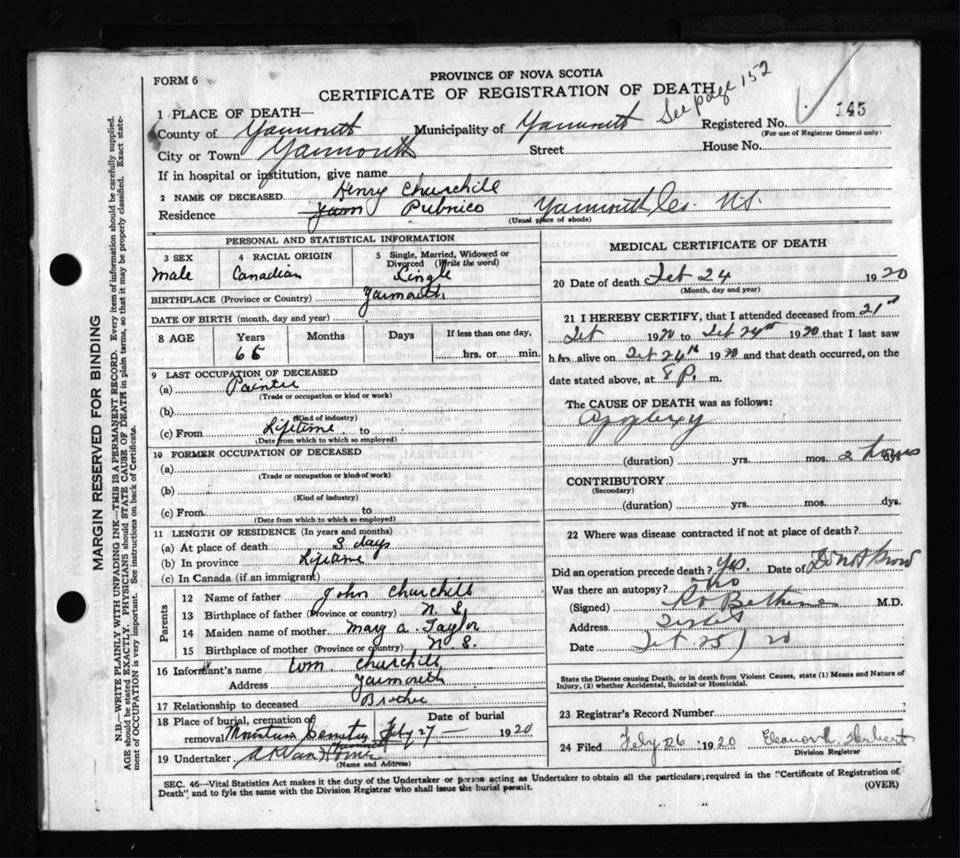 PROVINCE OF NOVA SCOTIA
FORM 6
CERTIFICATE OF REGISTRATION OF DEATH
See page 152
1 PLACE OF DEATH—
County of Yarmouth Municipality of Yarmouth Registered No. 145
(For use of Registrar General only)
City or Town Yarmouth Street House No.
If in hospital or institution, give name
2 NAME OF DECEASED Henry Churchill
Residence Yarm Pubnico Yarmouth Co. N.S.
(Usual place of abode)
PERSONAL AND STATISTICAL INFORMATION
3 SEX 4 RACIAL ORIGIN 5 Single, Married, Widowed or Divorced (Write the word)
Male Canadian Single
BIRTHPLACE (Province or Country) Yarmouth
DATE OF BIRTH (month, day and year)
8 AGE Years Months Days If less than one day,
65 hrs. or min.
9 LAST OCCUPATION OF DECEASED
(a) Painter
(Trade or occupation or kind or work)
(b)
(Kind of industry)
(c) From Lifetime to
(Date from which to which so employed)
10 FORMER OCCUPATION OF DECEASED
(a)
(Trade or occupation or kind of work)
(b)
(Kind of industry)
(c) From to
(Date from which to which so employed)
11 LENGTH OF RESIDENCE (In years and months)
(a) At place of death 3 days
(b) In province Lifetime
(c) In Canada (if an immigrant)
Parents
12 Name of father John Churchill
13 Birthplace of father (Province or country) N.S.
14 Maiden name of mother Mary A. Taylor
15 Birthplace of mother (Province or country) N.S.
16 Informant's name Wm. Churchill
Address Yarmouth
17 Relationship to deceased Brother
18 Place of burial, cremation or removal Mountain Cemetery Date of burial Feby 27 — 1920
19 Undertaker, Van Horne Yarmouth
(Name and Address)
MEDICAL CERTIFICATE OF DEATH
20 Date of death Feb 24 1920
(Month, day and year)
21 I HEREBY CERTIFY, that I attended deceased from 21st
Feb 1920 to Feb 24th 1920 that I last saw
him alive on Feb 24th 1920 and that death occurred, on the
date stated above, at P. m.
The CAUSE OF DEATH was as follows:
Apoplexy
(duration) yrs. mos. 2 hours dys.
CONTRIBUTORY
(Secondary)
(duration) yrs. mos. dys.
22 Where was disease contracted if not at place of death?
Did an operation precede death? Yes. Date of Do not know
Was there an autopsy? No
(Signed) M.D.
Address
Date Feb 25 / 20
State the Disease causing Death, or in death from Violent Causes, state (1) Means and Nature of
Injury, (2) whether Accidental, Suicidal or Homicidal.
23 Registrar's Record Number
24 Filed Feby 26 1920 Herbert
Division Registrar
SEC. 46—Vital Statistics Act makes it the duty of the Undertaker or person acting as Undertaker to obtain all the particulars required in the "Certificate of Registration of
Death" and to fyle the same with the Division Registrar who shall issue the burial permit.
(OVER)
MARGIN RESERVED FOR BINDING
N.B.—WRITE PLAINLY WITH UNFADING INK—THIS IS A PERMANENT RECORD. Every item of information should be carefully supplied.
AGE should be stated EXACTLY. PHYSICIANS should STATE CAUSE OF DEATH in plain terms, so that it may be properly classified. Exact state-
ment of OCCUPATION is very important. See instructions on back of Certificate.